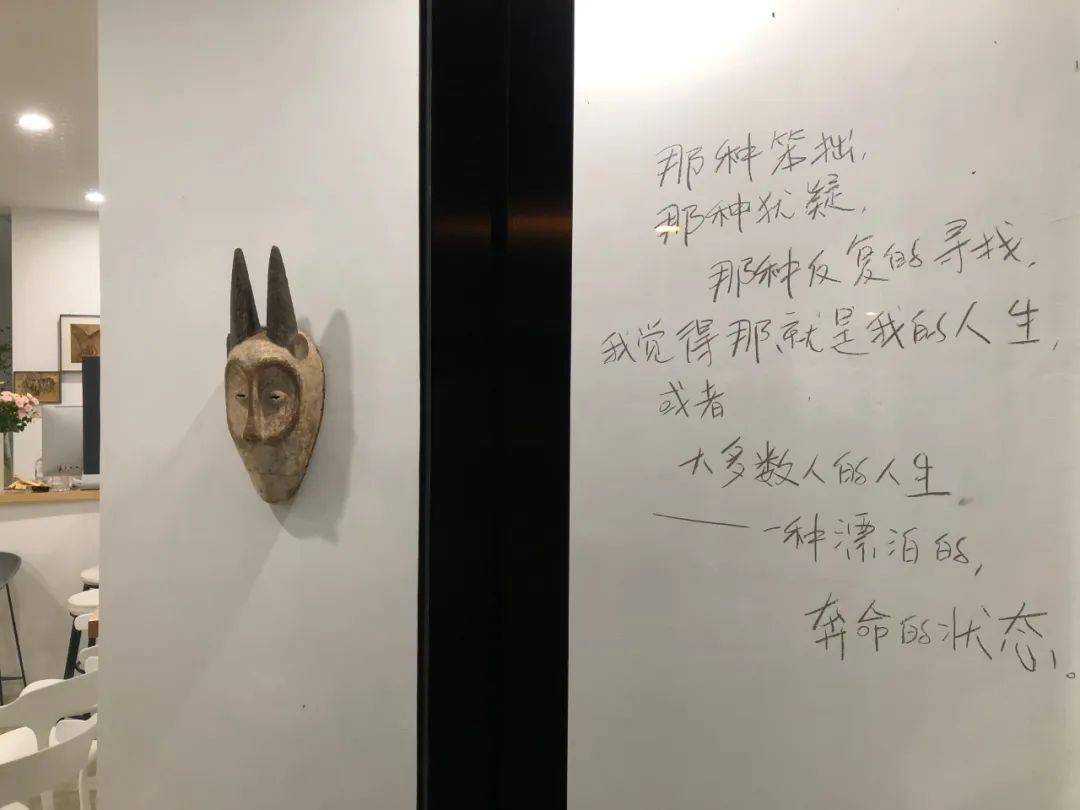 那种笨拙,
那种犹疑,
那种反复的寻找,
我觉得那就是我的人生,
或者
大多数人的人生
——一种漂泊的,
奔命的状态。